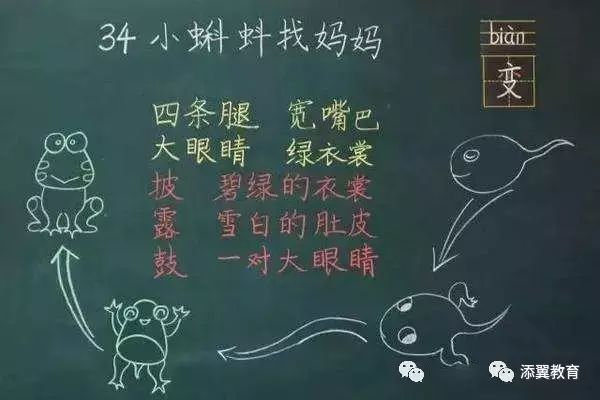 34 小蝌蚪找妈妈
biàn
变
四条腿 宽嘴巴
大眼睛 绿衣裳
披 碧绿的衣裳
露 雪白的肚皮
鼓 一对大眼睛
添翼教育